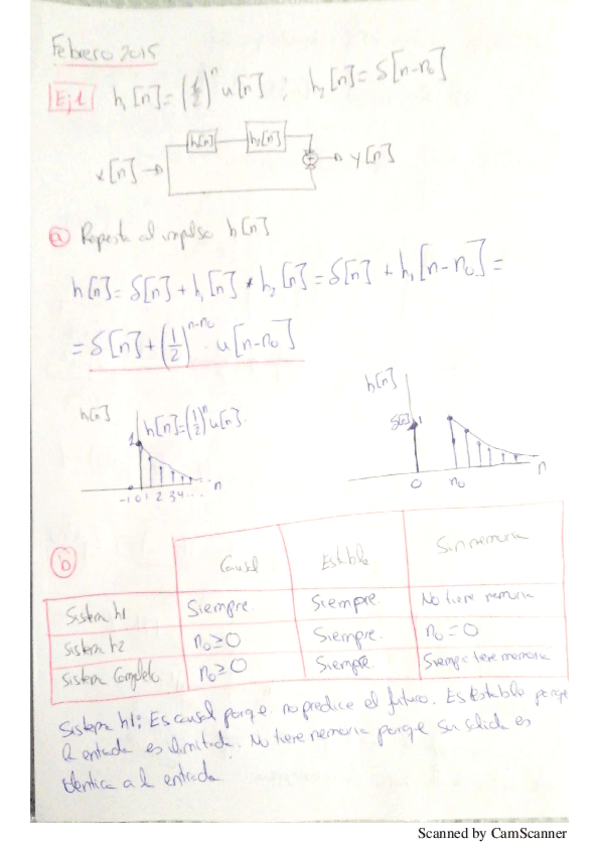 Febrero 2015
Ej1 h₁[n]=(1/2)ⁿ u[n] ; h₂[n]=δ[n-n₀]
h₁[n] h₂[n]
x[n] → + → y[n]
a Repuesta al impulso h[n]
h[n]= δ[n]+h₁[n]*h₂[n]=δ[n]+h₁[n-n₀]=
=δ[n]+(1/2)ⁿ⁻ⁿ⁰·u[n-n₀]
h[n]
h[n] h[n]=(1/2)ⁿu[n].
1 δ[n] 1
-1 0 1 2 3 4 ... n 0 n₀ n
b Causal Estable Sin memoria
Sistema h1 Siempre. Siempre. No tiene memoria
Sistema h2 n₀≥0 Siempre. n₀=0
Sistema Completo n₀≥0 Siempre. Siempre tiene memoria
Sistema h1: Es causal porque no predice el futuro. Es Estable porque
la entrada es limitada. No tiene memoria porque su salida es
identica a la entrada
Scanned by CamScanner